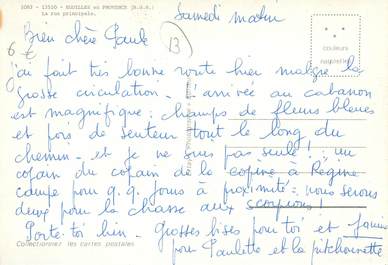 1083 - 13510 - EGUILLES en PROVENCE (B.D.R.)
La rue principale.
Samedi matin
6 €
13
Bien chère Paule
couleurs
naturelles
j'ai fait très bonne route hier malgré la
grosse circulation - L'arrivée au cabanon
est magnifique : champs de fleurs bleues
et pois de senteur tout le long du
chemin - et je ne suis pas seule ! un
copain du copain de la copine à Régine
campe pour q.q. jours à proximité : nous serons
deux pour la chasse aux scorpions !
Porte-toi bien - Grosses bises pour toi et
pour Paulette et la pitchounette
Collectionnez les cartes postales